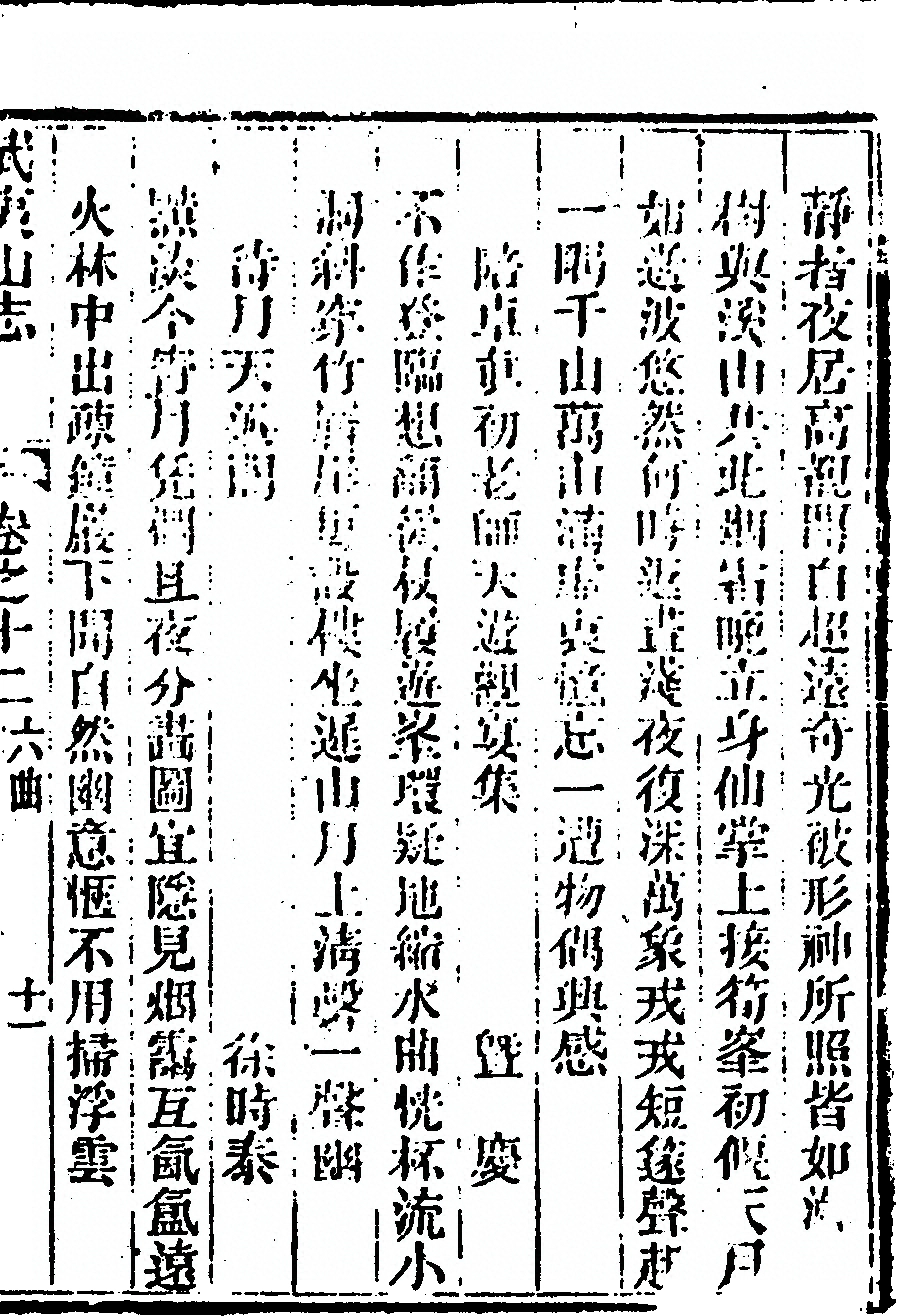 靜者夜居高觀閒自超遠奇光被形神所照皆如
樹與溪山共此烟霜晚立身仙掌上接筍峯初偃天月
如逝波悠然何時返晝淺夜復深萬象戎戎短遠聲
一鳴千山萬山滿 忘一遭物偶興感
陪卓初老師天遊觀宴集
曁慶
不作登臨想 從杖屨遊峯環疑地縮水曲恍杯流小
洞斜穿竹 層 設樓坐遲山月上清磬一聲幽
待月天遊閣
徐時泰
淡今宵月凭闌且夜分畵圖宜隱見烟靄互氤氳遠
火林中出疎鐘巖下聞自然幽意愜不用掃浮雲
武夷山志
卷之十二
六曲
十一